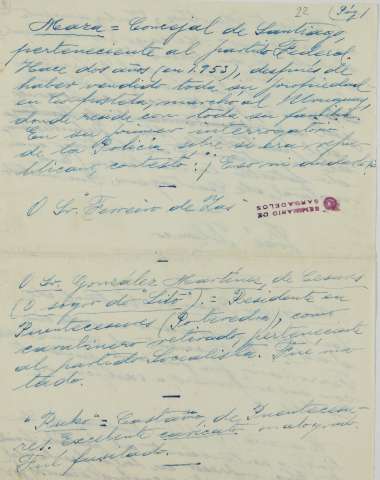 22 (Páz)
Maza = Concejal de Santiago,
perteneciente al partido Federal.
Hace dos años (en 1.953), después de
haber vendido toda su propiedad
en Compostela, marchó al Uruguay,
donde reside con toda su familia.
En su primer interrogatorio
de la Policía sobre si era repu-
blicano, contestó: ¡Eso ni se duda!
O Sr. "Ferreiro de Zas"
SEMINARIO DE
SARGADELOS
O Sr. González Martínez, de Cesures
(O sogro do "Sito"). = Residente en
Puentecesures (Pontevedra), como
carabinero retirado, perteneciente
al partido Socialista. Fué ma-
tado.
"Rubo" = de Puentecesu-
res. Excelente
Fué fusilado.